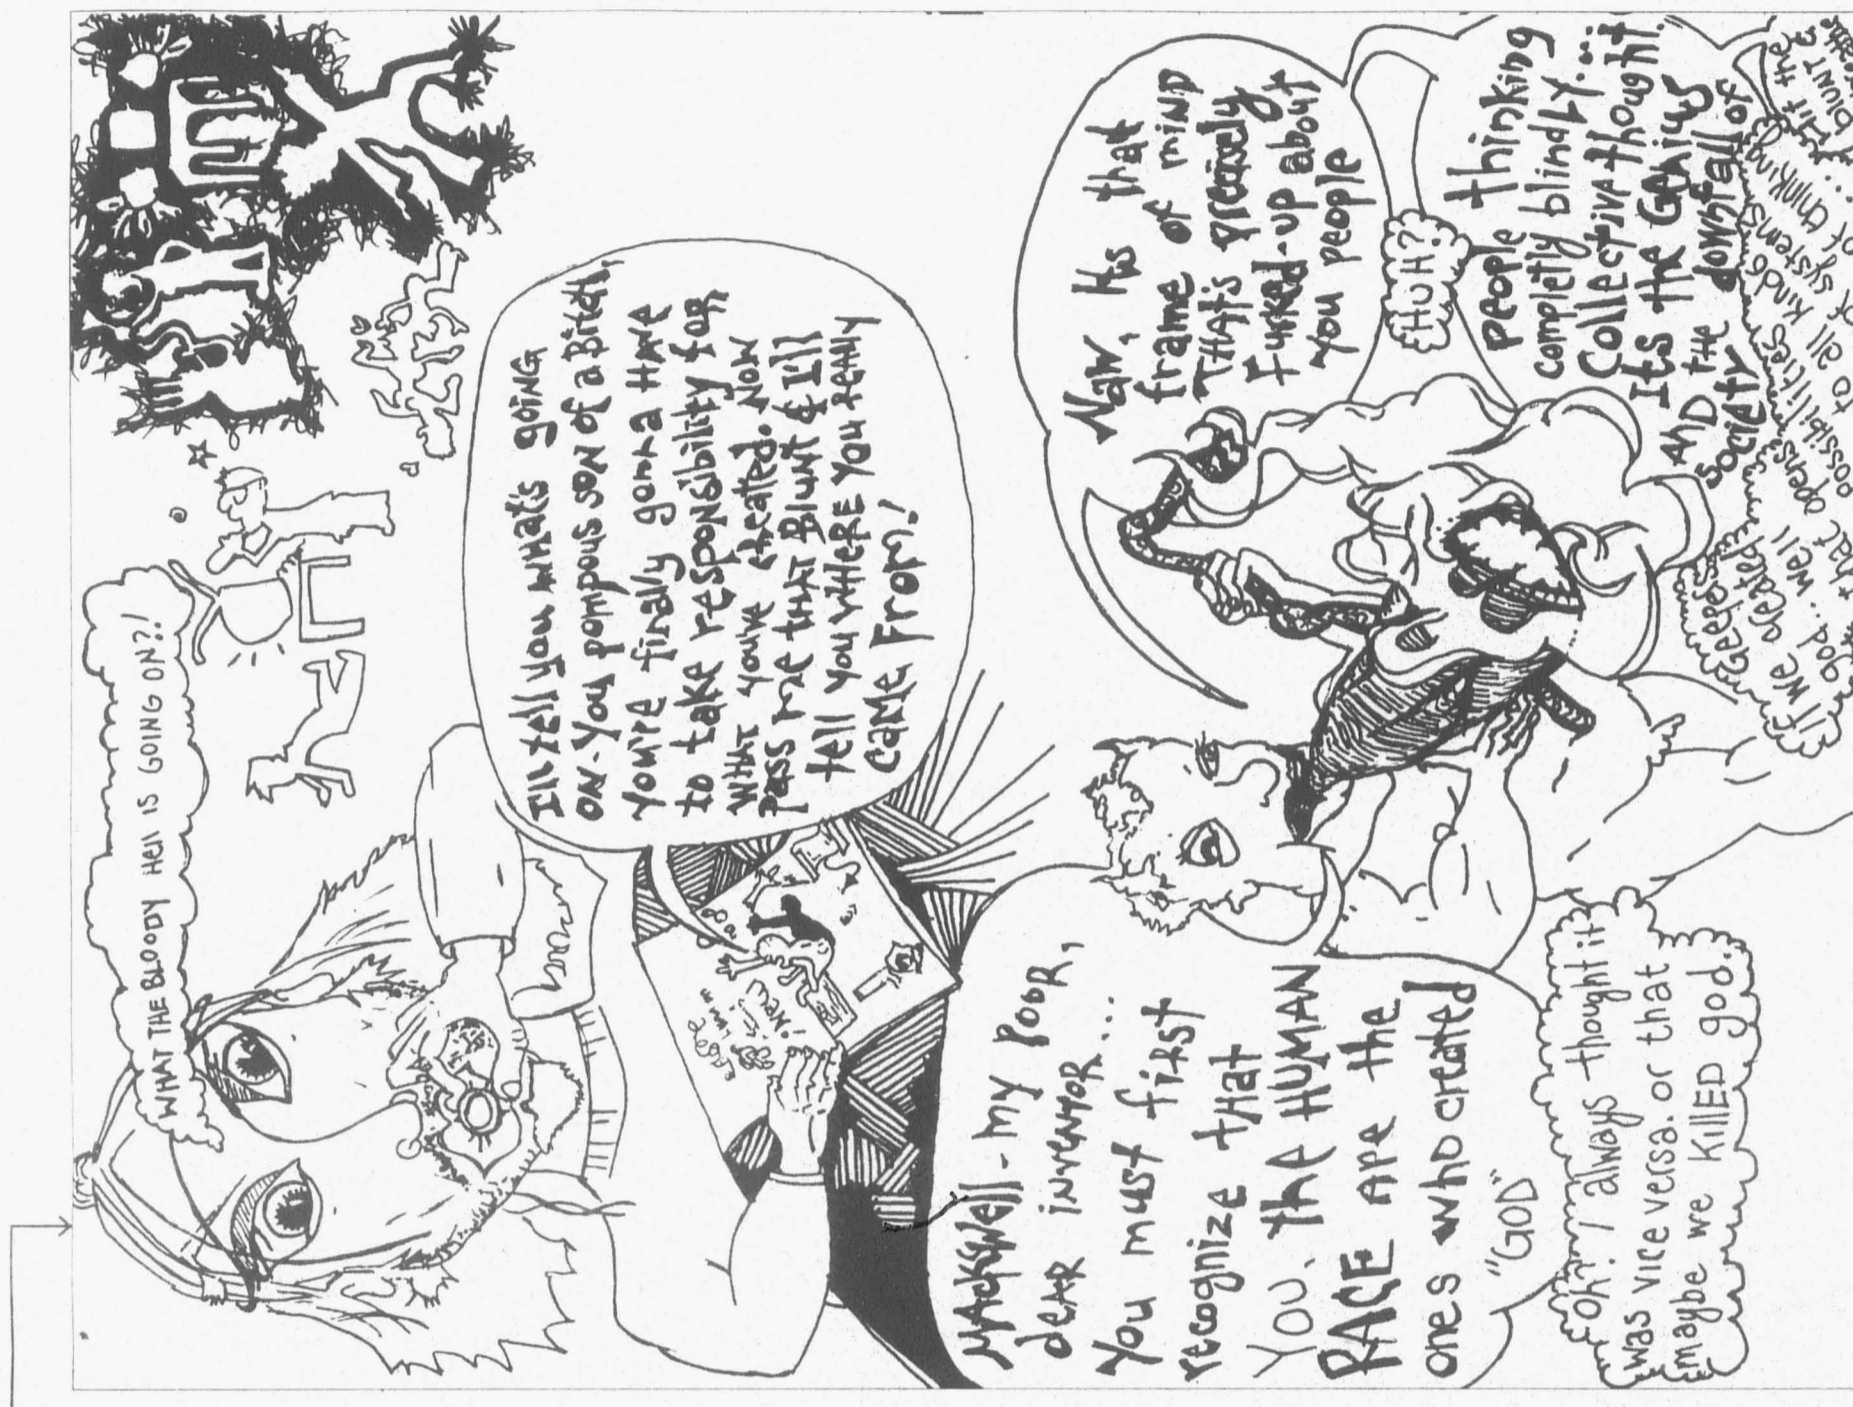 WHAT THE BLOODY HEll IS GOING ON?!
I'll tell you WHAt's goinG
ON. You pompous SON of a Bitch,
You're finally gonna HAVE
to take responsibility for
WHAT you've created. NOW
Pass me tHAT Blunt & I'll
tell you wHERE You REAlly
CAME From!
MACKWell - my POOR,
deAR inventoR...
You must first
recognize tHAt
YOU, tHe HUMAN
RACE ARE the
ones who created
"GOD"
Naw, Its that
frame of mind
THAt's precisely
Fucked-up about
you people
HUH?
people thinking
completly blindly....
Collective thought.
Its the Genius
AND the downfall of
society
Oh? I always thought it
was vice versa. or that
maybe we KillED god.
GEEPERS
If we created
god.. well
that opens
possibilities
to all kinds
of systems
of thinking...
Hit the
blunt &